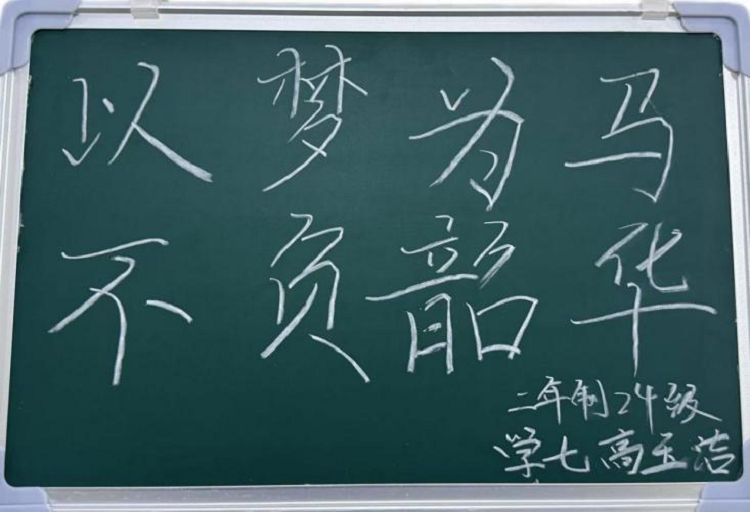 以梦为马
不负韶华
二年制24级
学七高玉洁